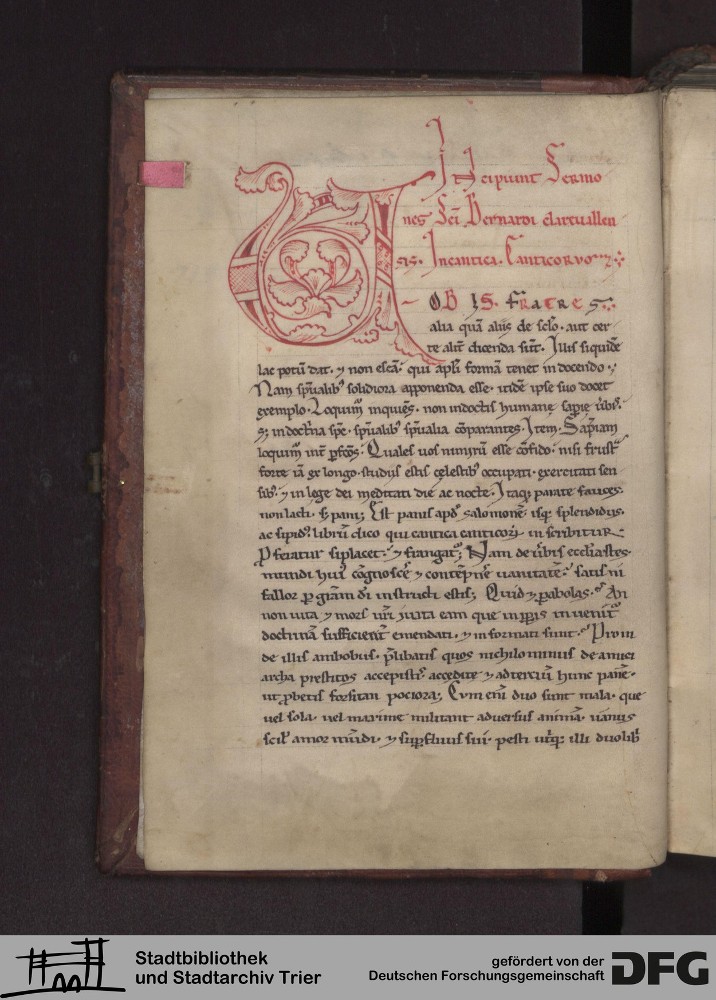 Incipiunt Sermo
nes Sc̄i Bernardi clarevallen
sis. Incantica. Canticorvo
VOBIS. fratres.
alia quā aliis de sc̄lo. aut cer
te alit̄ dicenda sūt. Illis siquidē
lac potū dat. ⁊ non escā. qui apl̄i formā tenet in docendo.
Nam spūalib⁹ solidiora apponenda esse. itidē ipse suo docet
exemplo. Loquim̄ inquiēs. non indoctis humanę sapīe ūbis.
sꝫ in doctrīa spc̄. spūalib⁹ spūalia cōparantes. Item. Sapīam
loquim̄ int̄ ꝑfectos. Quales uos nimirū esse cōfido. nisi frust̄
forte iā ex longo studiis estis cęlestib⁹ occupati. exercitati sen
sib⁹. ⁊ in lege dei meditati die ac nocte. Itaqꝫ parate fauces.
non lacti. sꝫ pani; Est panis apd̄ salomonē. isqꝫ splendidus.
ac sipid⁹. librū dico qui cantica canticoꝝ inscribitur.
Proferatur si placet. ⁊ frangat̄; Nam de ūbis ecclīastes.
mundi hui⁹ cōgnoscē ⁊ contēpnē uanitatē. satis ni
fallor ꝑ grām dī instructi estis; Quid ⁊ ꝑabolas. An
non uita ⁊ mores ur̄i iuxta eam que in ip̄sis inuenit̄
doctrinā sufficient̄ emendati. ⁊ informati sunt. Proin
de illis ambobus. p̄libatis quos nichilominus de amici
archa prestitos accepistis. accedite ⁊ ad terciū hunc panē.
ut ꝓbetis forsitan pociora; Cvm enī duo sunt mala. que
uel sola. uel maxime militant aduersus animā. uanus
scil̄ amor mūdi. ⁊ suꝑfluus sui. pesti utriqꝫ illi duo lib̄
Stadtbibliothek
und Stadtarchiv Trier
gefördert von der
Deutschen Forschungsgemeinschaft
DFG